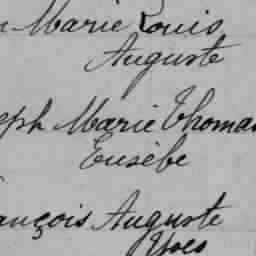 Marie Louis
Auguste
eph Marie Thomas
Eusèbe
ançois Auguste
Yves